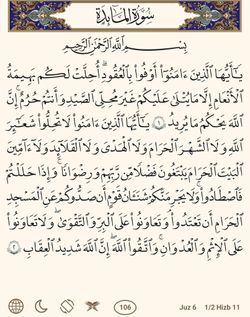 سُورَةُ المَائِدَةِ
بِسْمِ ٱللَّهِ ٱلرَّحْمَٰنِ ٱلرَّحِيمِ
يَٰٓأَيُّهَا ٱلَّذِينَ ءَامَنُوٓا۟ أَوْفُوا۟ بِٱلْعُقُودِ ۚ أُحِلَّتْ لَكُم بَهِيمَةُ
ٱلْأَنْعَٰمِ إِلَّا مَا يُتْلَىٰ عَلَيْكُمْ غَيْرَ مُحِلِّى ٱلصَّيْدِ وَأَنتُمْ حُرُمٌ ۗ إِنَّ
ٱللَّهَ يَحْكُمُ مَا يُرِيدُ ١ يَٰٓأَيُّهَا ٱلَّذِينَ ءَامَنُوا۟ لَا تُحِلُّوا۟ شَعَٰٓئِرَ
ٱللَّهِ وَلَا ٱلشَّهْرَ ٱلْحَرَامَ وَلَا ٱلْهَدْىَ وَلَا ٱلْقَلَٰٓئِدَ وَلَآ ءَآمِّينَ
ٱلْبَيْتَ ٱلْحَرَامَ يَبْتَغُونَ فَضْلًا مِّن رَّبِّهِمْ وَرِضْوَٰنًا ۚ وَإِذَا حَلَلْتُمْ
فَٱصْطَادُوا۟ ۚ وَلَا يَجْرِمَنَّكُمْ شَنَـَٔانُ قَوْمٍ أَن صَدُّوكُمْ عَنِ ٱلْمَسْجِدِ
ٱلْحَرَامِ أَن تَعْتَدُوا۟ ۘ وَتَعَاوَنُوا۟ عَلَى ٱلْبِرِّ وَٱلتَّقْوَىٰ ۖ وَلَا تَعَاوَنُوا۟
عَلَى ٱلْإِثْمِ وَٱلْعُدْوَٰنِ ۚ وَٱتَّقُوا۟ ٱللَّهَ ۖ إِنَّ ٱللَّهَ شَدِيدُ ٱلْعِقَابِ ٢
106 Juz 6 1/2 Hizb 11